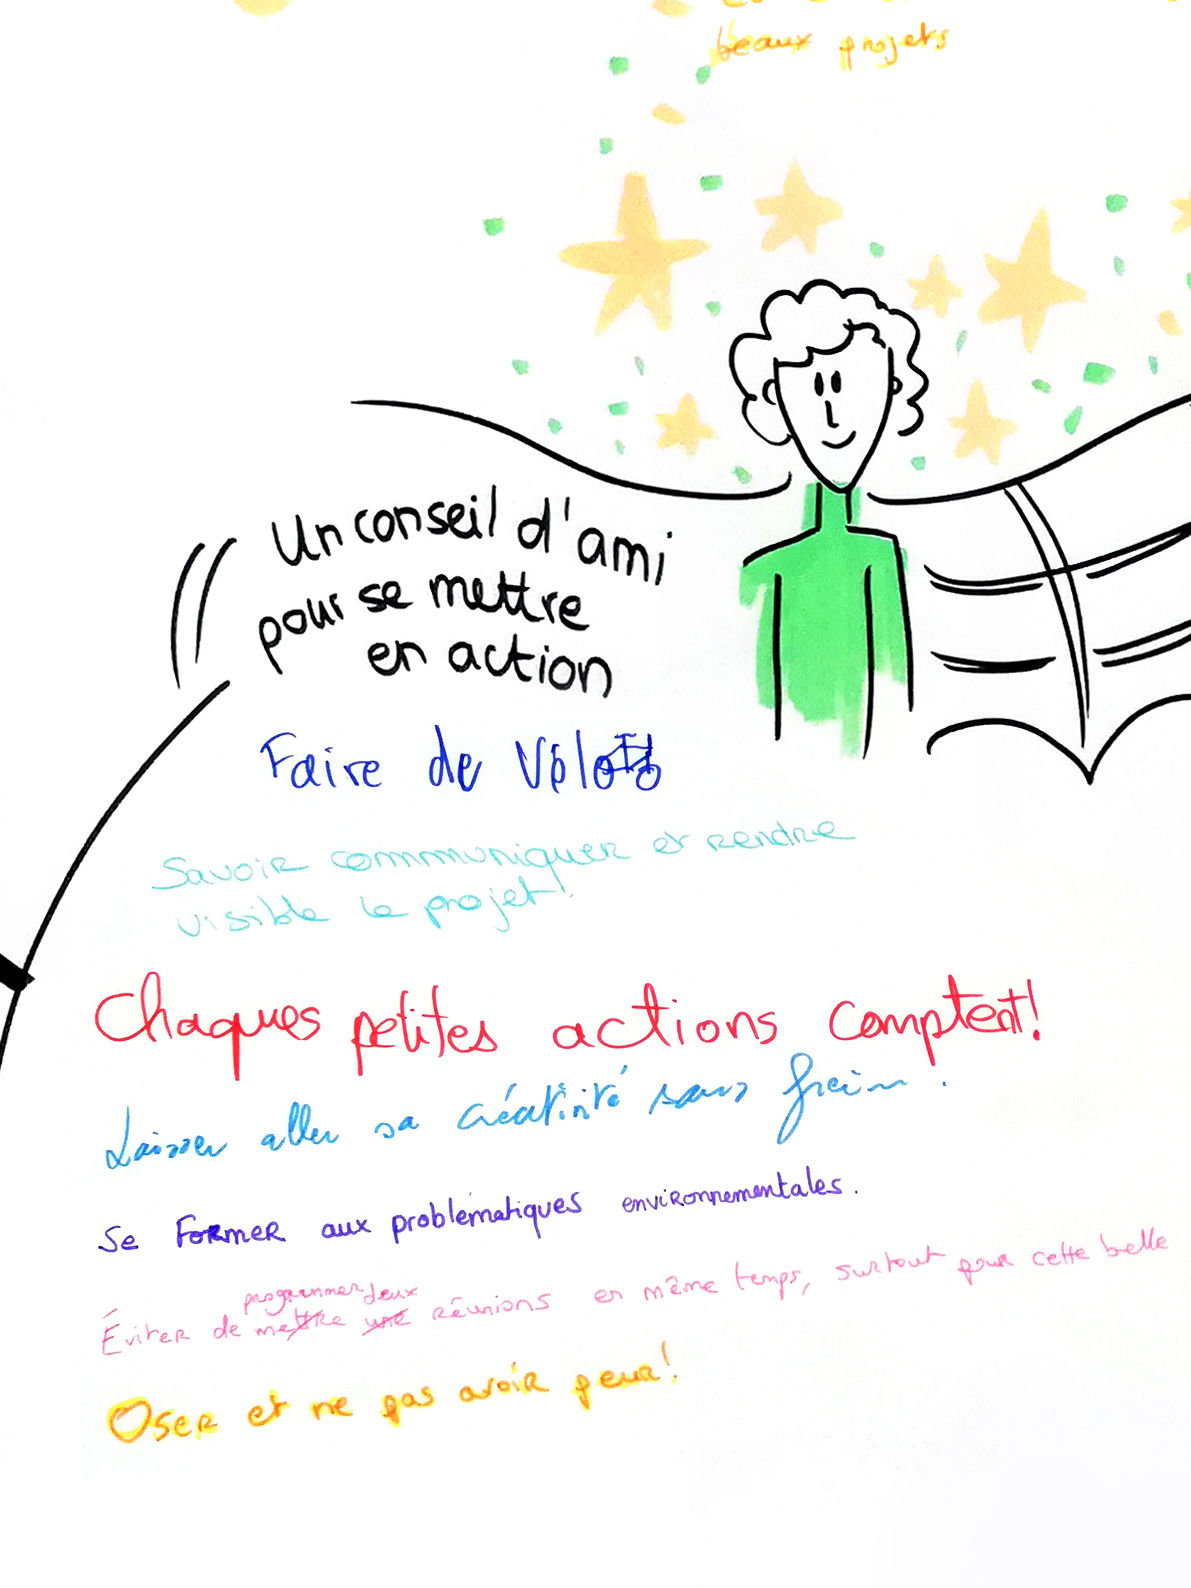 beaux projets
Un conseil d'ami
pour se mettre
en action
Faire de vélo
Savoir communiquer et rendre
visible le projet!
Chaques petites actions comptent!
Laisser aller sa créativité sans frein.
Se former aux problématiques environnementales.
programmer deux
Éviter de mettre une réunions en même temps, surtout pour cette belle
Oser et ne pas avoir peur!